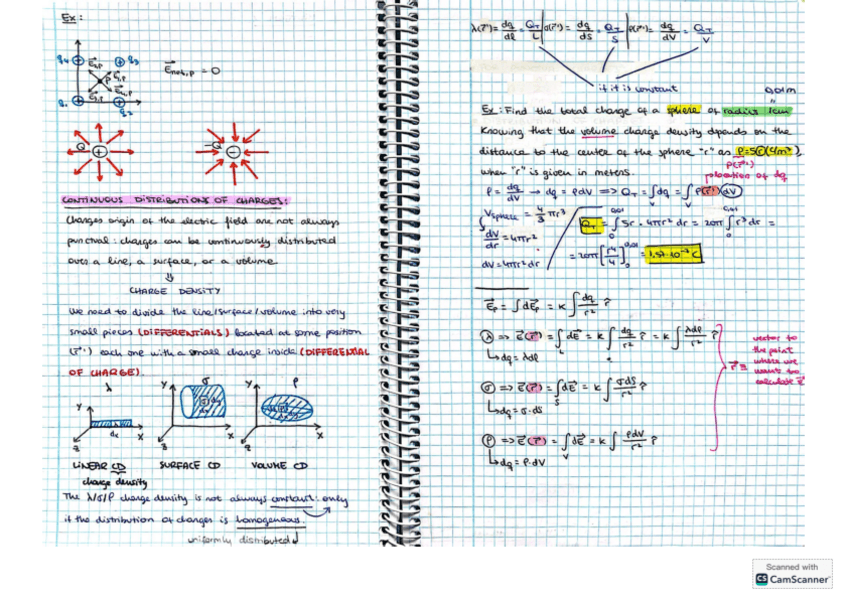 Ex:
q4 q3
E3,p E2,p
Enet,p = 0
p
E4,p E1,p
q1 q2
Q -Q
CONTINUOUS DISTRIBUTIONS OF CHARGES:
Charges origin of the electric field are not always
punctual: charges can be continuously distributed
over a line, a surface, or a volume.
⇓
CHARGE DENSITY
We need to divide the line/surface/volume into very
small pieces (DIFFERENTIALS) located at some position
(r') each one with a small charge inside (DIFFERENTIAL
OF CHARGE).
λ σ ρ
Y Y Y
dx X X X
z z z
LINEAR CD SURFACE CD VOLUME CD
charge density
The λ/σ/ρ charge density is not always constant: only
if the distribution of charges is homogeneous.
uniformly distributed
λ(r') = dq/dl = QT/L | σ(r') = dq/ds = QT/S | ρ(r') = dq/dV = QT/V
if it is constant
0,01m
Ex: Find the total charge of a sphere of radius 1cm
Knowing that the volume charge density depends on the
distance to the center of the sphere "r" as ρ=5r(C/m³),
when "r" is given in meters.
ρ(r')
location of dq
ρ = dq/dV → dq = ρdV ⇒ QT = ∫dq = ∫ρ(r')dV
Vsphere = 4/3 πr³
dV/dr = 4πr²
dV = 4πr²dr
QT = ∫₀^0,01 5r · 4πr² dr = 20π ∫₀^0,01 r³dr =
= 20π [r⁴/4]₀^0,01 = 1,57·10⁻⁷ C
Ep = ∫dEp = k ∫ dq/r² r̂
λ ⇒ E(r) = ∫L dE = k ∫ dq/r² r̂ = k ∫ λdl/r² r̂
↳ dq = λdl
σ ⇒ E(r) = ∫S dE = k ∫ σds/r² r̂
↳ dq = σ·ds
ρ ⇒ E(r) = ∫V dE = k ∫ ρdV/r² r̂
↳ dq = ρ·dV
r ≡
vector to
the point
where we
want to
calculate E
Scanned with
CS CamScanner